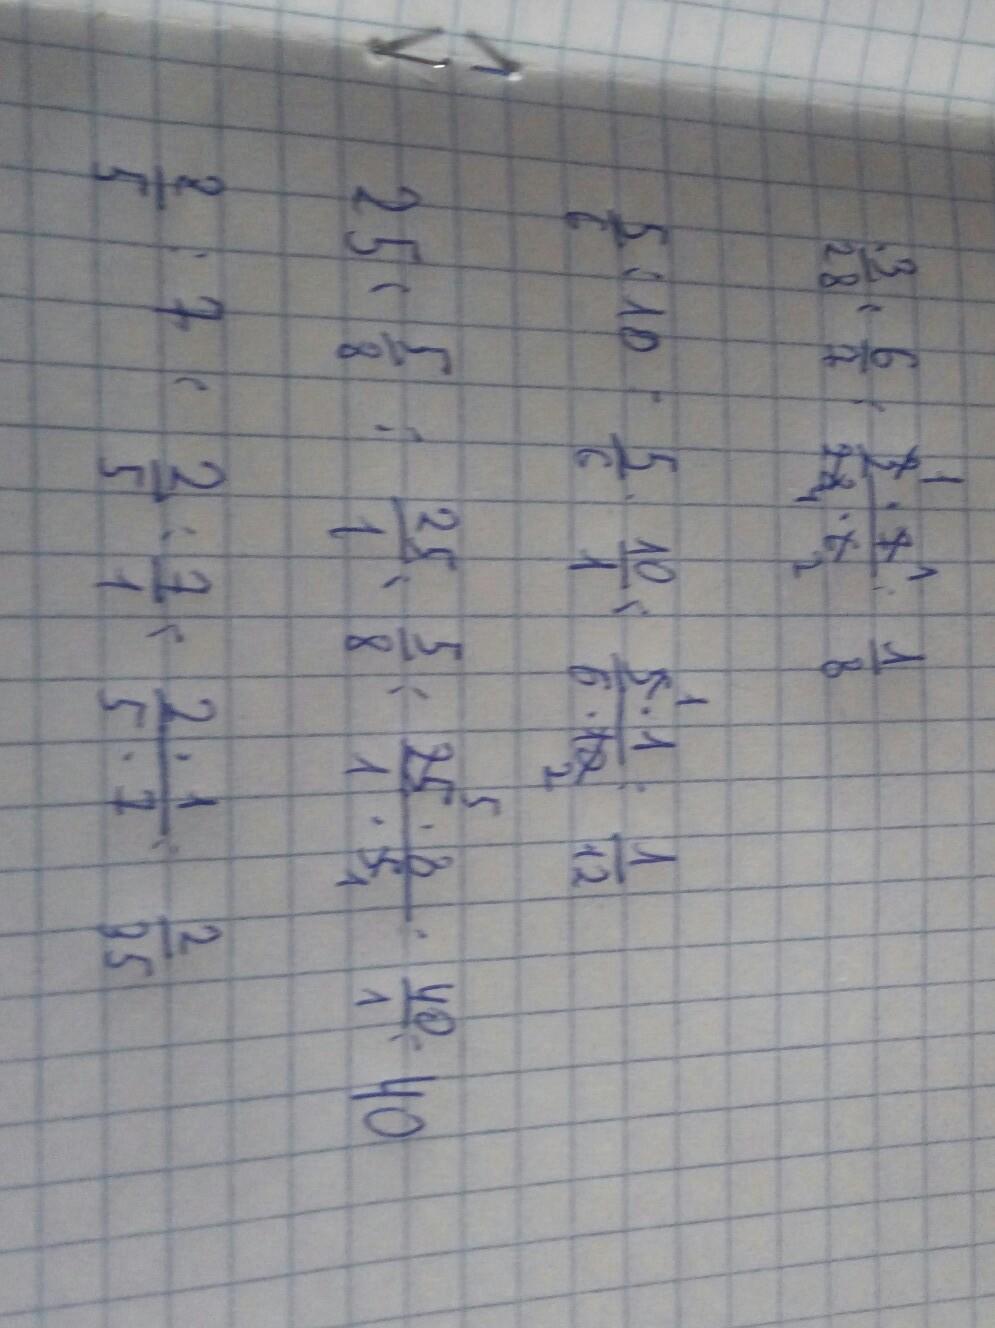 3/28 : 6/7 = 3·7/28·6 = 1/8
5/6 : 10 = 5/6 : 10/1 = 5·1/6·10 = 1/12
25 : 5/8 = 25/1 : 5/8 = 25·8/1·5 = 40/1 = 40
2/5 : 7 = 2/5 : 7/1 = 2·1/5·7 = 2/35